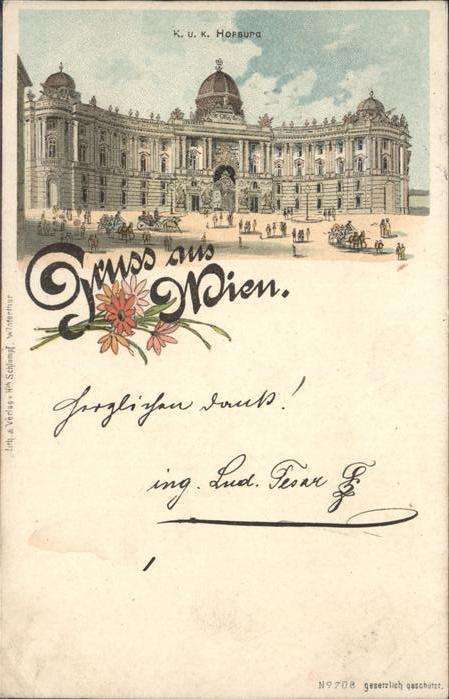 K. u. K. Hofburg
Gruss aus
Wien.
Lith. & Verlag v. Hch Schlumpf, Winterthur
Herzlichen Dank!
ing. Lud. Tesar
No 708 gesetzlich geschützt.